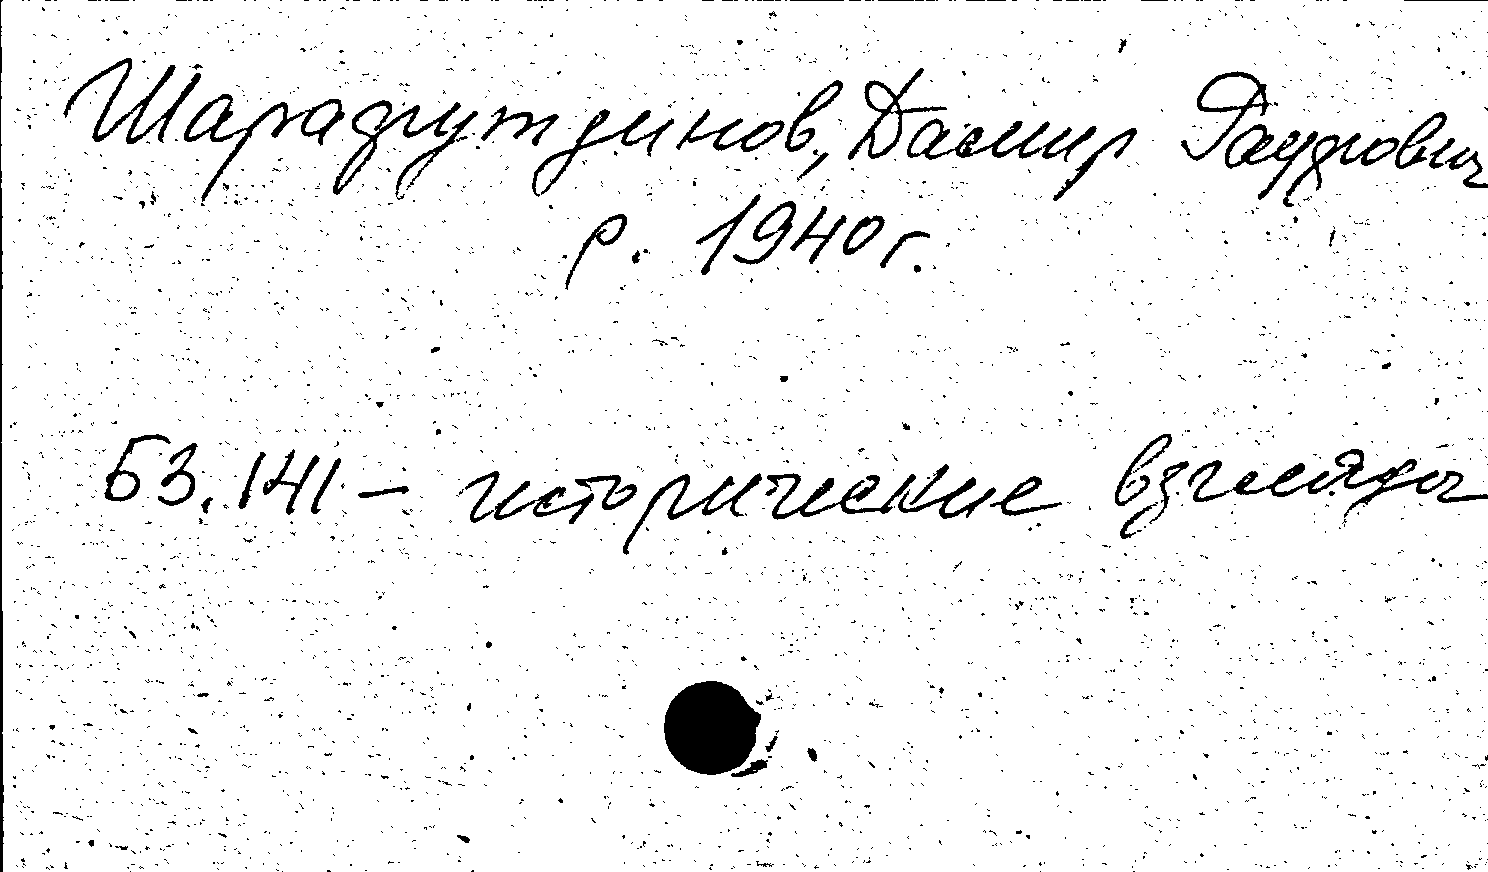 Шарафутдинов, Дамир Рауфович
р. 1940 г.
Б3.141 – исторические взгляды